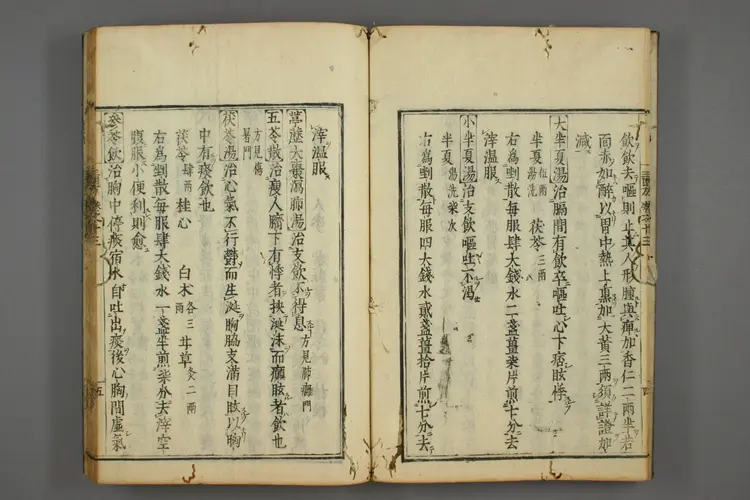 飲飲去嘔則止其人形腫與痺加杏仁二兩半若
面赤如醉以胃中熱上熏加大黃三兩須詳證加
減
大半夏湯治膈間有飲卒嘔吐心下痞眩悸
半夏伍兩湯洗　茯苓三兩
右爲剉散每服肆大錢水二盞薑柒片煎七分去
滓溫服
小半夏湯治支飲嘔吐不渴
半夏湯洗柒次
右爲剉散每服四大錢水貳盞薑拾片煎七分去
滓溫服
葶藶大棗瀉肺湯治支飲不得息方見肺癰門
五苓散治瘦人臍下有悸者挾涎沫而癲眩者飲也
方見傷暑門
茯苓湯治心氣不行鬱而生涎胸脇支滿目眩以胸
中有痰飲也
茯苓肆兩　桂心　白朮各三兩　甘草炙二兩
右爲剉散每服肆大錢水一盞半煎柒分去滓空
腹服小便利則愈
參苓飲治胸中停痰宿水自吐出痰後心胸間虛氣
五